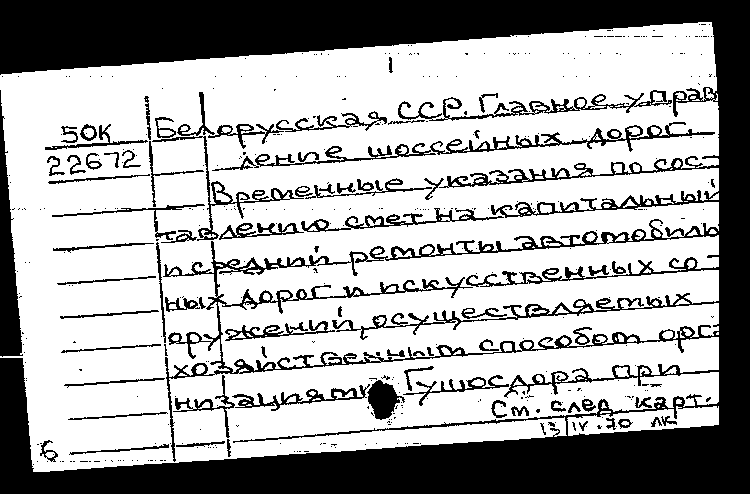 1
50К Белорусская ССР. Главное управ
22672 ление шоссейных дорог.
Временные указания по сос-
тавлению смет на капитальный
и средний ремонты автомобиль
ных дорог и искусственных со-
оружений, осуществляемых
хозяйственным способом орга
низациями Гушосдора при
См. след карт.
13/IV.70 ЛК
6